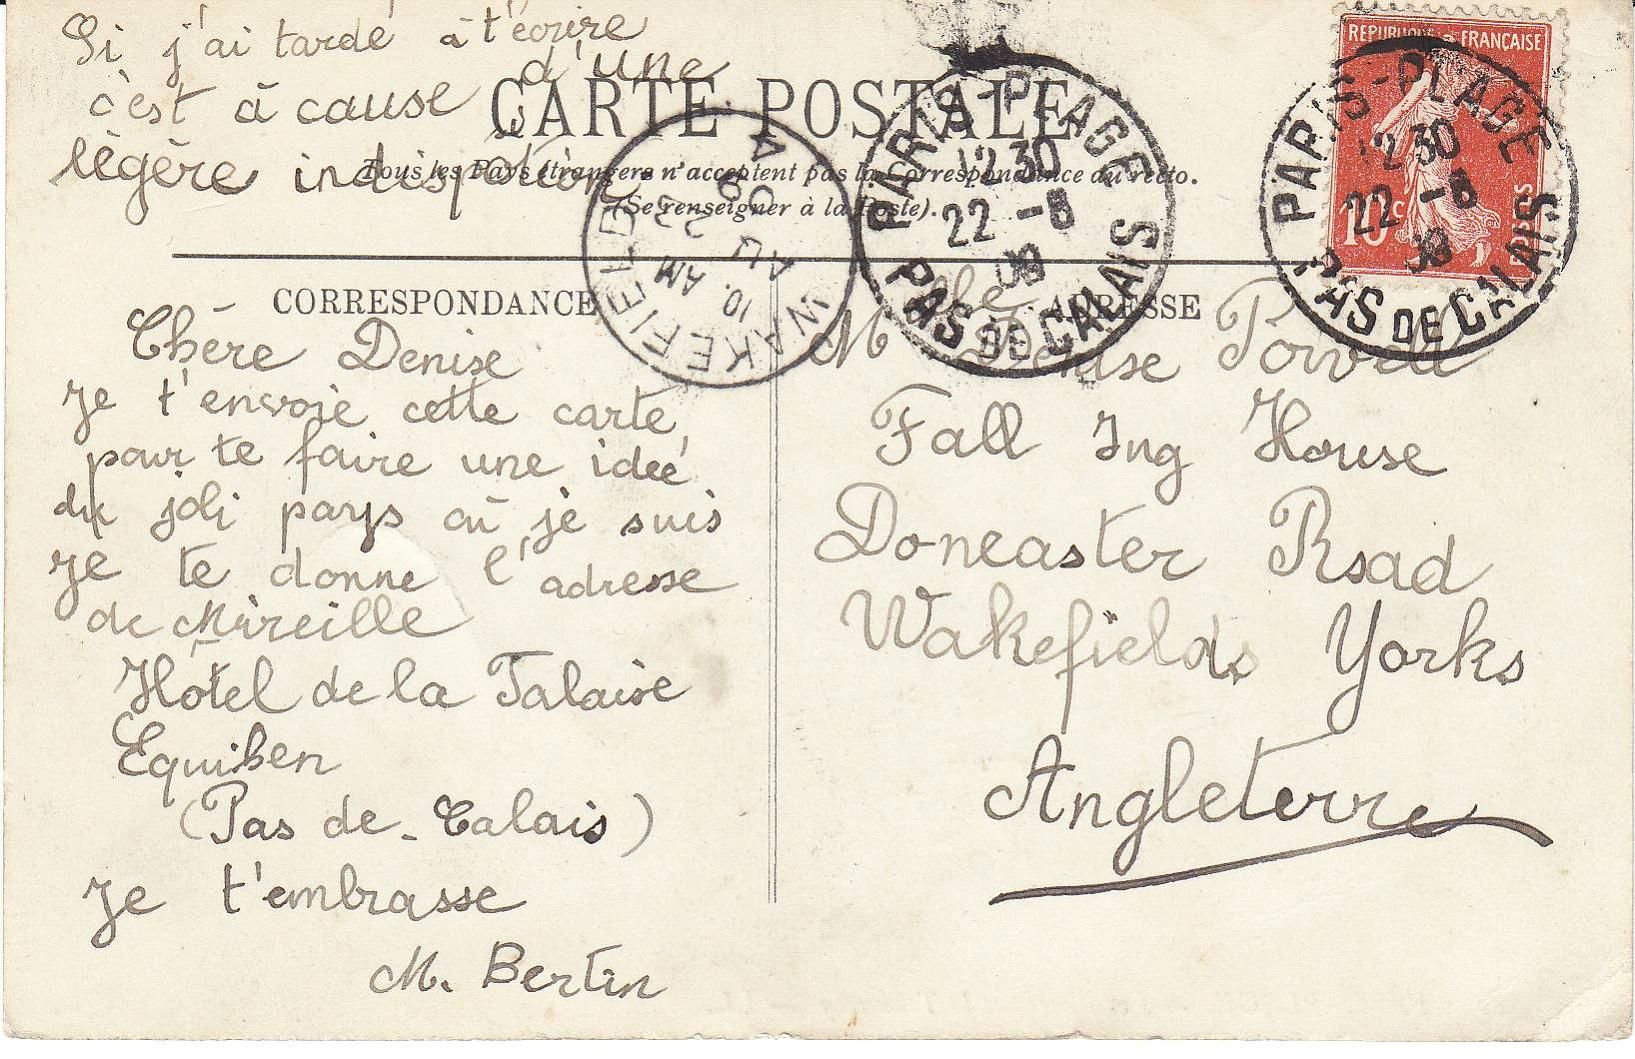 Si j'ai tardé à t'écrire
c'est à cause d'une
légère indisposition
CARTE POSTALE
Tous les Pays étrangers n'acceptent pas la Correspondance au recto.
(Se renseigner à la Poste).
RÉPUBLIQUE FRANÇAISE
10c
PARIS-PLAGE
12 30
22 -8
09
PAS DE CALAIS
PARIS-PLAGE
12 30
22 -8
PAS DE CALAIS
WAKEFIELD
10. AM
AU 23
09
A
CORRESPONDANCE
Chère Denise
Je t'envoie cette carte
pour te faire une idée
du joli pays où je suis
Je te donne l'adresse
de Mireille
Hôtel de la Falaise
Equihen
(Pas de-Calais)
Je t'embrasse
M. Bertin
ADRESSE
Mlle Denise Powell
Fall Ing House
Doncaster Road
Wakefields Yorks
Angleterre